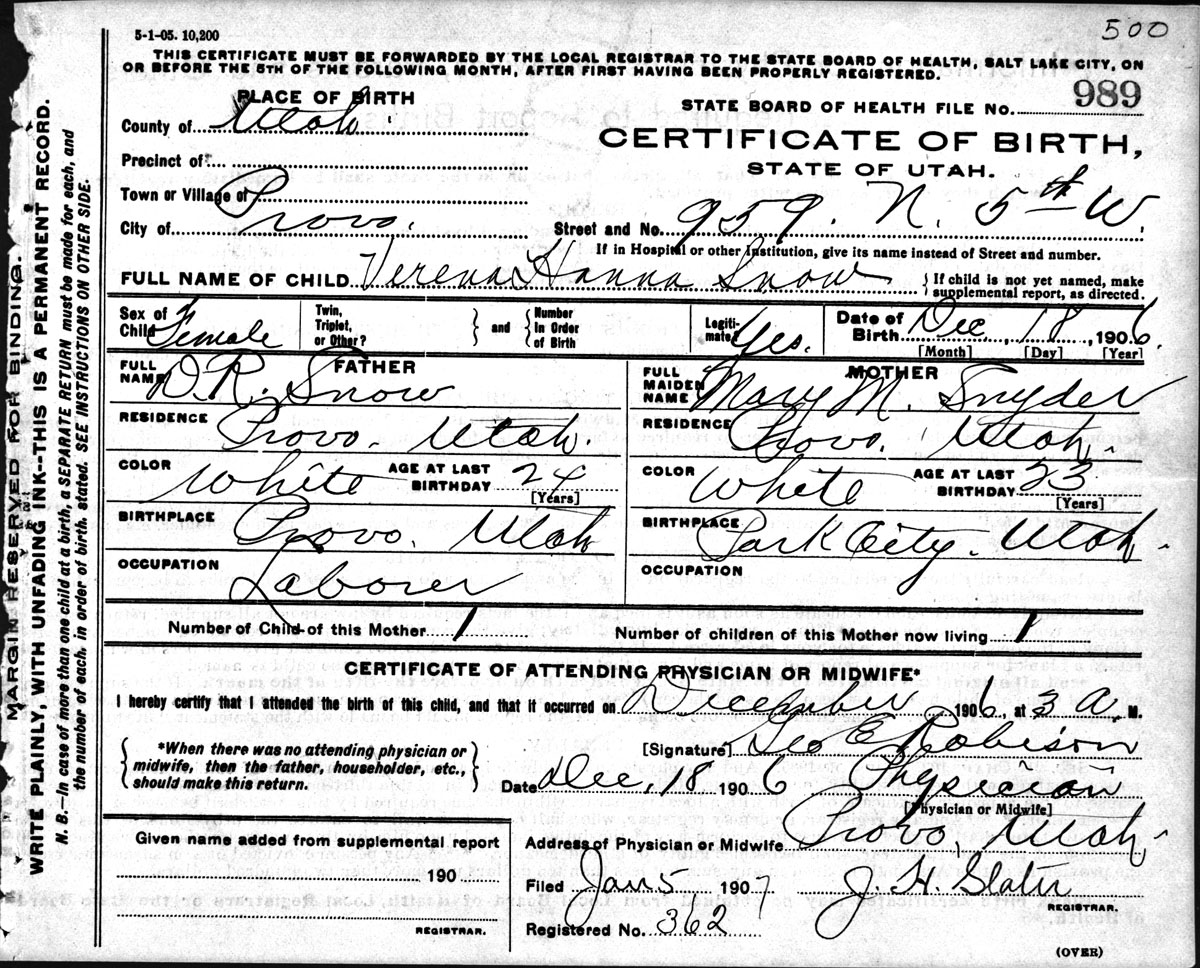 500
5-1-05. 10,200
THIS CERTIFICATE MUST BE FORWARDED BY THE LOCAL REGISTRAR TO THE STATE BOARD OF HEALTH, SALT LAKE CITY, ON
OR BEFORE THE 5TH OF THE FOLLOWING MONTH, AFTER FIRST HAVING BEEN PROPERLY REGISTERED.
PLACE OF BIRTH
STATE BOARD OF HEALTH FILE No. 989
County of Utah
CERTIFICATE OF BIRTH,
Precinct of
STATE OF UTAH.
Town or Village of
City of Provo. Street and No. 959. N. 5th W.
If in Hospital or other Institution, give its name instead of Street and number.
FULL NAME OF CHILD Verena Hanna Snow { If child is not yet named, make
supplemental report, as directed.
Sex of Child Female Twin, Triplet, or Other? } and { Number In Order of Birth Legiti- mate? Yes. Date of Birth Dec, 18, 1906.
[Month] [Day] [Year]
FATHER MOTHER
FULL NAME D. R. Snow FULL MAIDEN NAME Mary M. Snyder
RESIDENCE Provo. Utah. RESIDENCE Provo. Utah.
COLOR White AGE AT LAST BIRTHDAY 24 [Years] COLOR White AGE AT LAST BIRTHDAY 23 [Years]
BIRTHPLACE Provo. Utah BIRTHPLACE Park City. Utah.
OCCUPATION Laborer OCCUPATION
Number of Child of this Mother 1 Number of children of this Mother now living 1
CERTIFICATE OF ATTENDING PHYSICIAN OR MIDWIFE*
I hereby certify that I attended the birth of this child, and that it occurred on December 1906, at 3 a. M.
{ *When there was no attending physician or
midwife, then the father, householder, etc.,
should make this return. }
[Signature] Geo E Robison
Date Dec, 18 1906 Physician
[Physician or Midwife]
Given name added from supplemental report
Address of Physician or Midwife Provo, Utah.
190
Filed Jan 5 1907 J. H. Slater
REGISTRAR.
REGISTRAR.
Registered No. 362
(OVER)
MARGIN RESERVED FOR BINDING.
WRITE PLAINLY, WITH UNFADING INK--THIS IS A PERMANENT RECORD.
N. B.—In case of more than one child at a birth, a SEPARATE RETURN must be made for each, and
the number of each, in order of birth, stated. SEE INSTRUCTIONS ON OTHER SIDE.